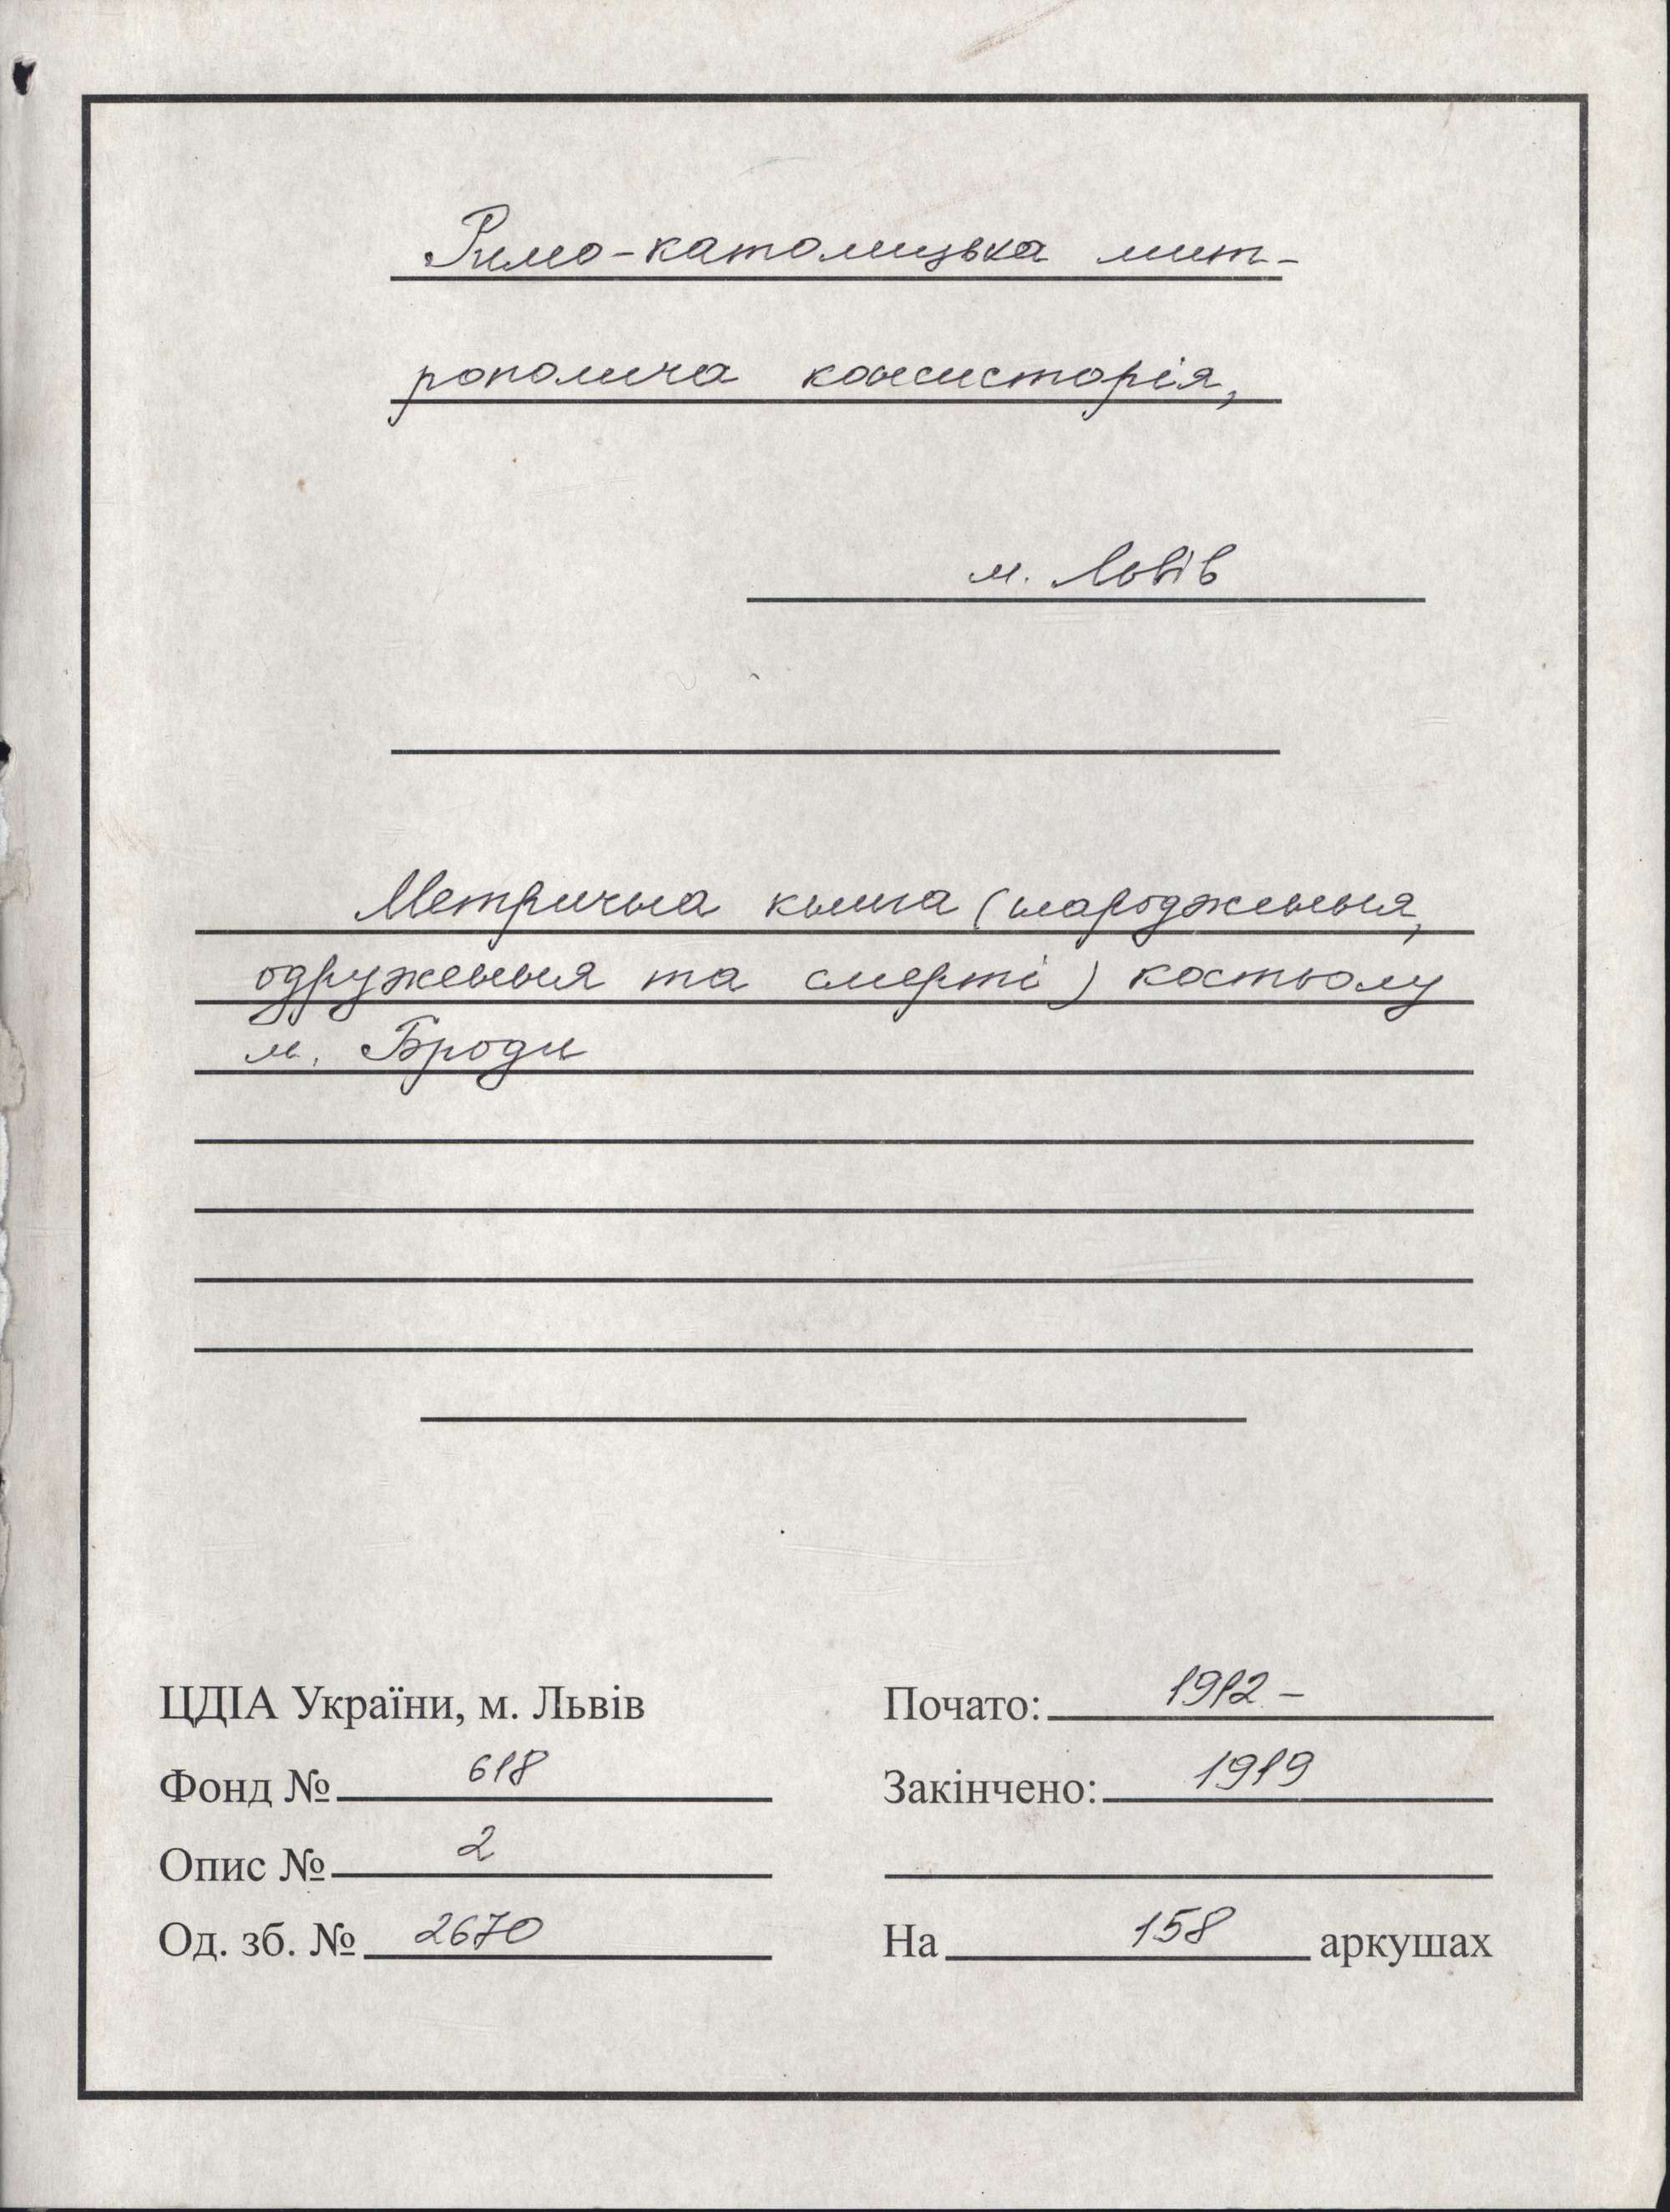 Римо-католицька мит-
рополича консисторія,
м. Львів
Метрична книга (народження,
одруження та смерті) костьолу
м. Броди
ЦДІА України, м. Львів
Фонд № 618
Опис № 2
Од. зб. № 2670
Почато: 1912 -
Закінчено: 1919
На 158 аркушах